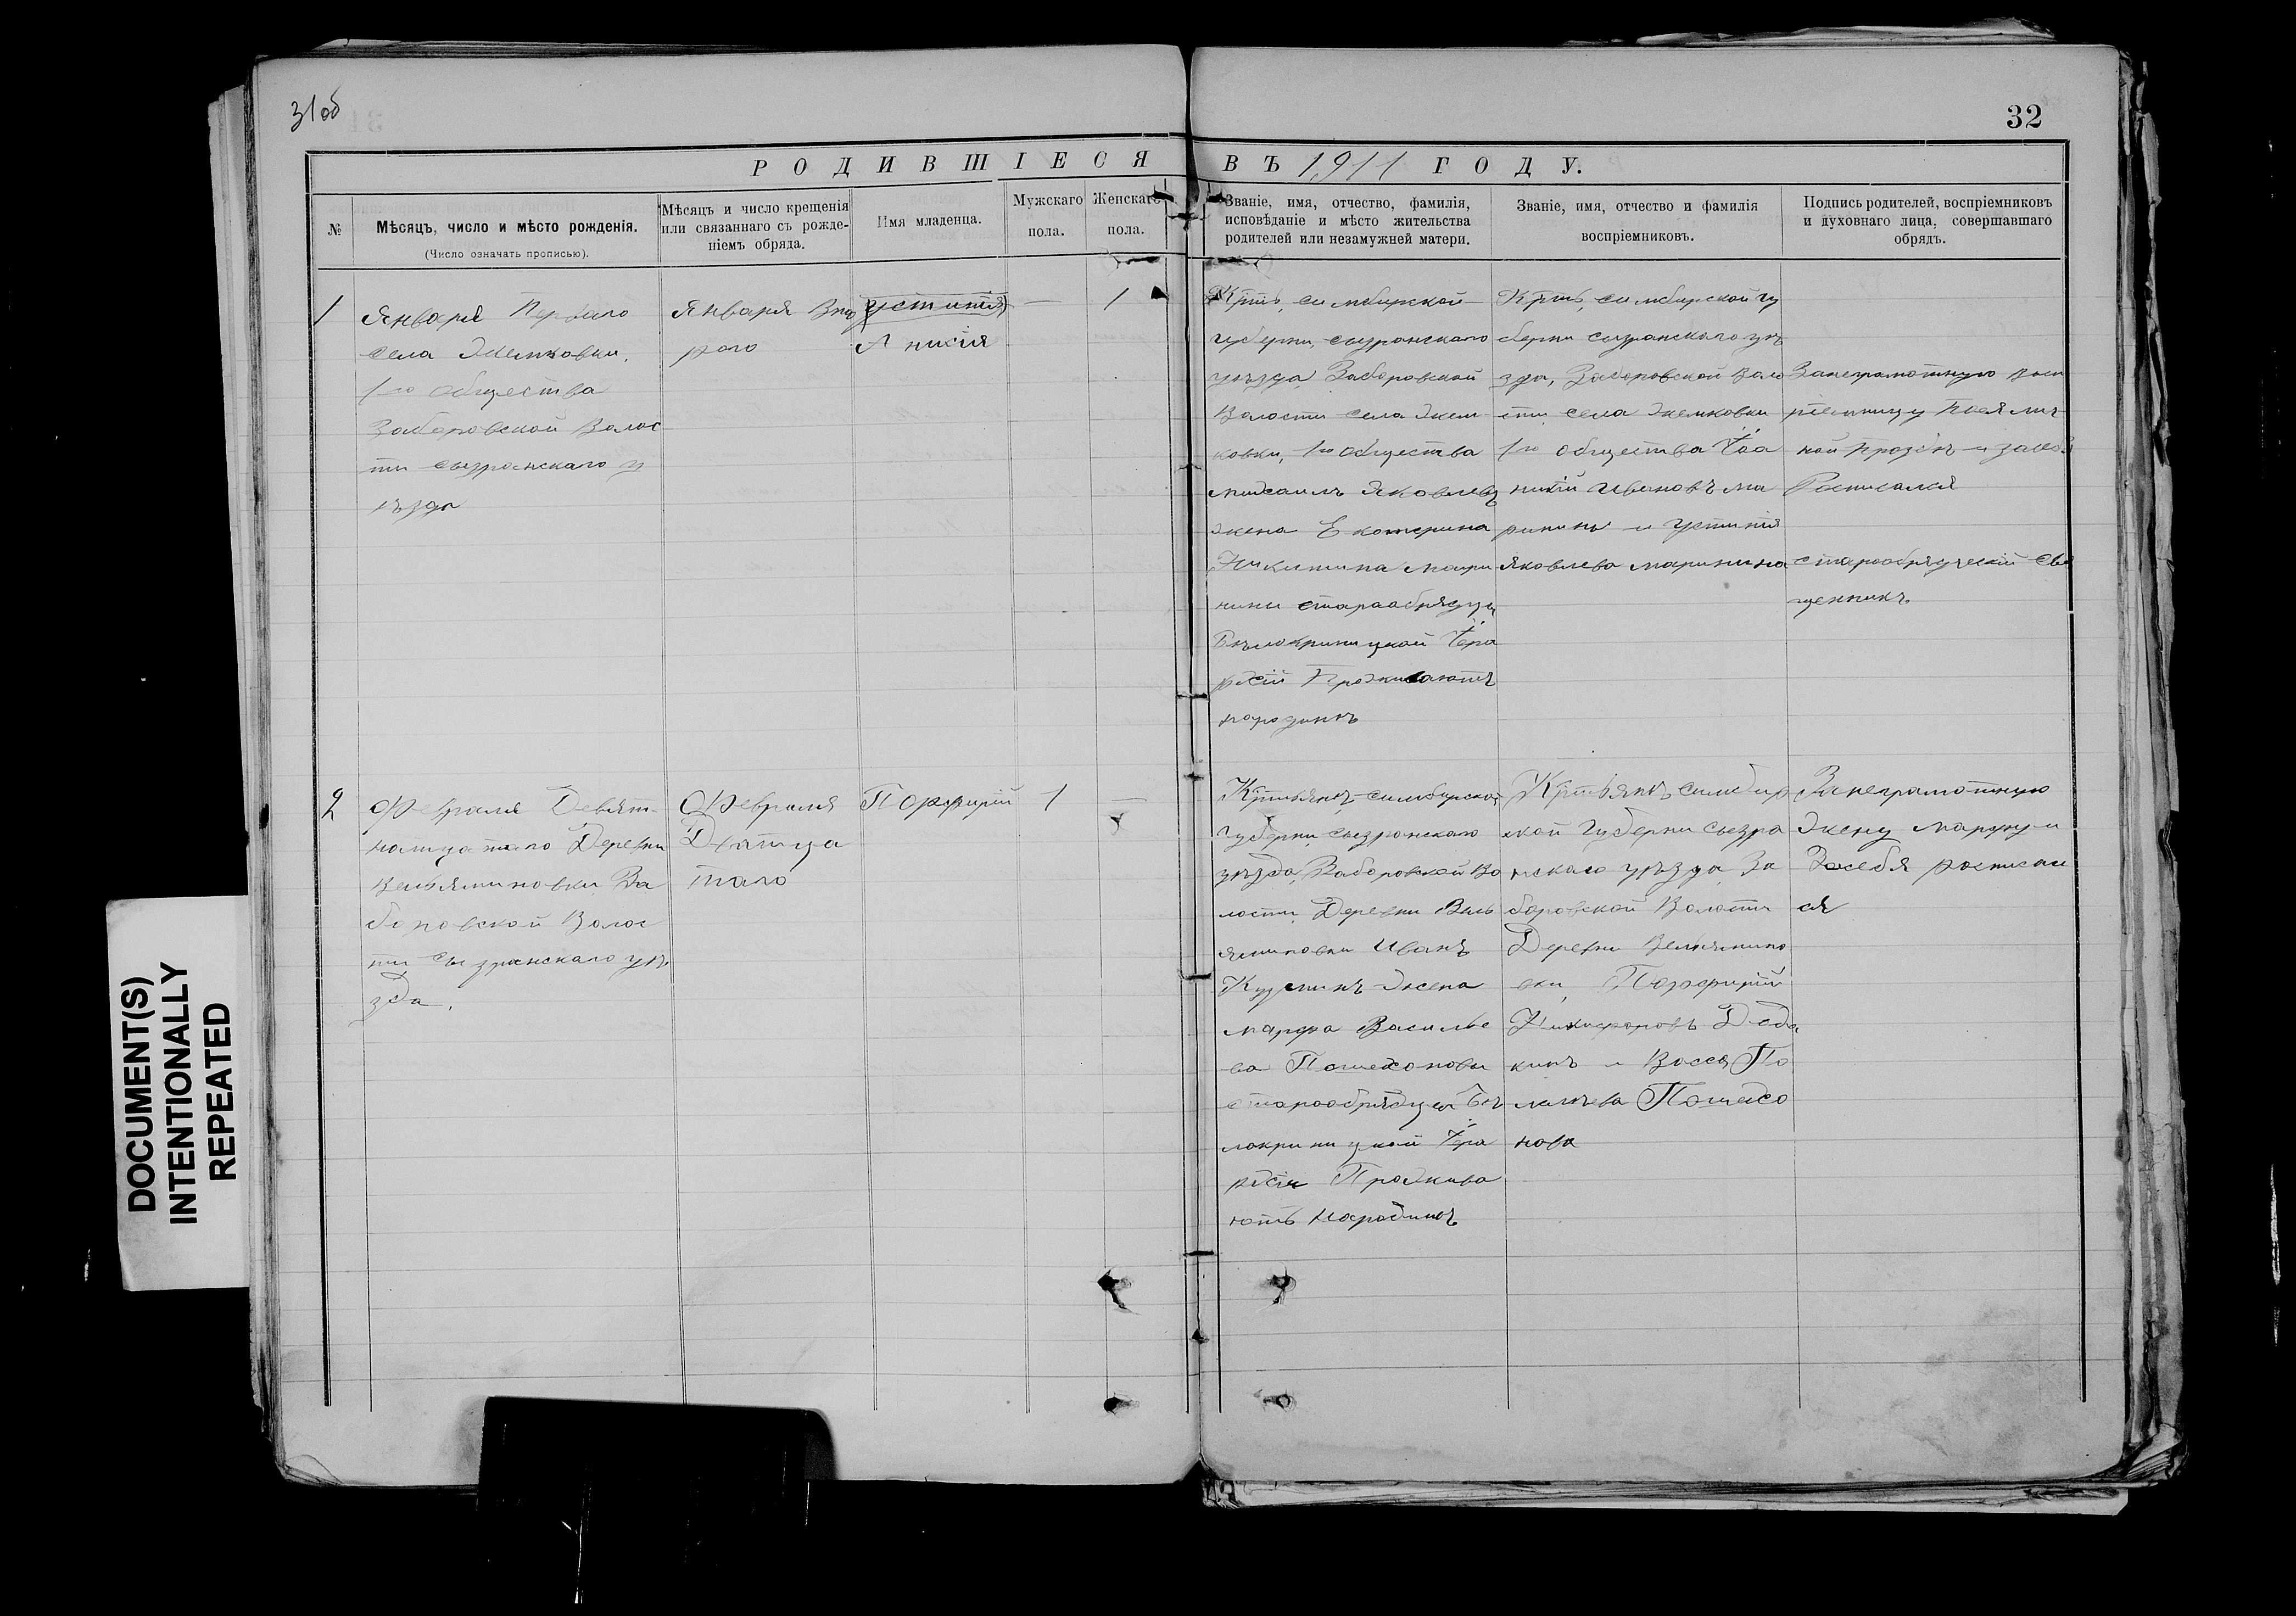 31об
32
РОДИВШІЕСЯ ВЪ 1911 ГОДУ.
№
Мѣсяцъ, число и мѣсто рожденія.
(Число означать прописью).
Мѣсяцъ и число крещенія
или связаннаго съ рожде-
ніемъ обряда.
Имя младенца.
Мужскаго
пола.
Женскаго
пола.
Званіе, имя, отчество, фамилія,
исповѣданіе и мѣсто жительства
родителей или незамужней матери.
Званіе, имя, отчество и фамилія
воспріемниковъ.
Подпись родителей, воспріемниковъ
и духовнаго лица, совершавшаго
обрядъ.
1
Января Перваго
села
1го общества
Заборовской Волос
ти сызранскаго у
ѣзда
Января Вто
рого
Устинія
Анисія
—
1
симбирской
губерни, сызранскаго
уѣзда Заборовской
Волости села
ковки, 1го общества
Яковлевъ
жена Екатерина
Никитина мари
нины старообрядцы
Бѣлокриницкой
рхіи Проживаютъ
народинѣ
симбирской гу
берни сызранскаго уѣ
зда, Заборовской Воло
сти села
1го общества
Ивановъ ма
рининъ и Устинія
Яковлева маринина
Занеграмотную
ной прозбѣ и засебя
Росписался
старообрядческій свя
щенникъ
2
Февраля Девят
надцатаго Деревни
Вельяминовки За
боровской Волос
ти сызранскаго уѣ
зда.
Февраля
Дватца
таго
Порфирій
1
—
симбирской
губерни, сызранскаго
уѣзда, Заборовской Во
лости, Деревни Вель
яминовки Иванъ
Кузминъ жена
марфа Василье
ва Пошехоновы
старообрядцы Бѣ
локриницкой
рхіи Прожива
ютъ народинѣ
симбир
ской губерни сызра
нскаго уѣзда, За
боровской Волости
Деревни Вельямино
вки, Порфирій
Никифоровъ Деда
кинъ и
Пошехо
нова
Занеграмотную
жену марфу и
Засебя росписал
ся
DOCUMENT(S)
INTENTIONALLY
REPEATED